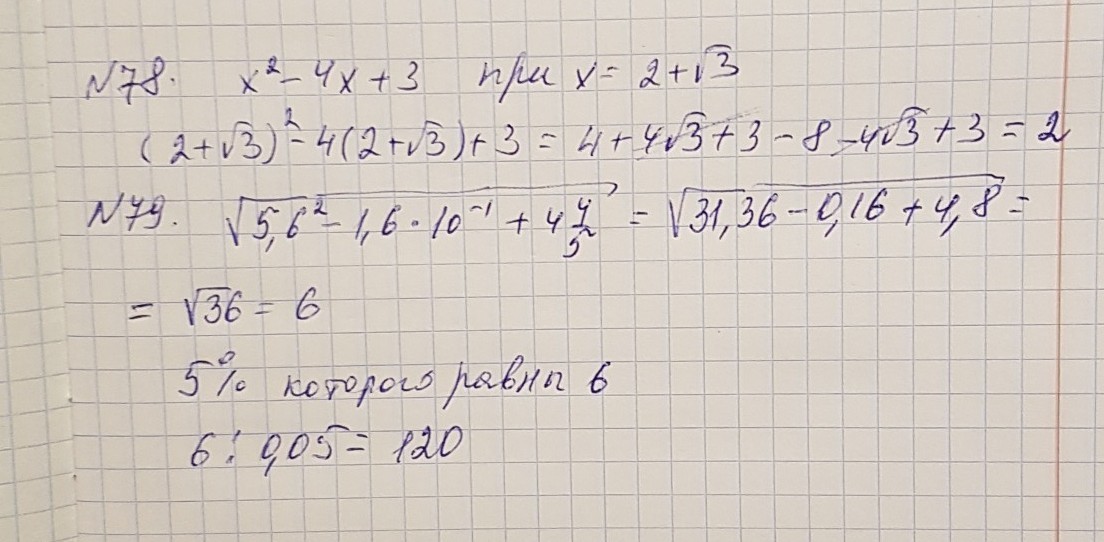 N78. x² - 4x + 3 при x = 2 + √3
(2+√3)² - 4(2+√3) + 3 = 4 + 4√3 + 3 - 8 - 4√3 + 3 = 2
N79. √(5,6² - 1,6 · 10⁻¹ + 4 4/5) = √(31,36 - 0,16 + 4,8) =
= √36 = 6
5% которого равны 6
6 : 0,05 = 120